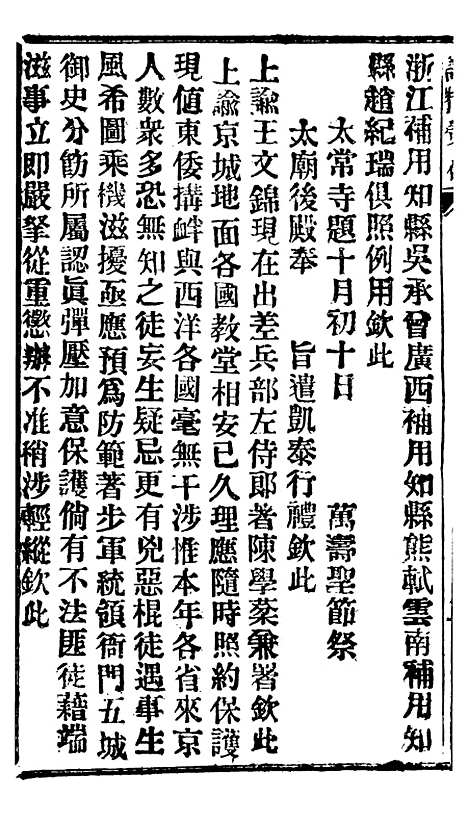 浙江補用知縣吳承曾廣西補用知縣熊軾雲南補用知
縣趙紀瑞俱照例用欽此
太常寺題十月初十日　萬壽聖節祭
太廟後殿奉　旨遣凱泰行禮欽此
上諭王文錦現在出差兵部左侍郎著陳學棻兼署欽此
上諭京城地面各國教堂相安已久理應隨時照約保護
現値東倭搆衅與西洋各國毫無干涉惟本年各省來京
人數衆多恐無知之徒妄生疑忌更有兇惡棍徒遇事生
風希圖乘機滋擾亟應預爲防範著步軍統領衙門五城
御史分飭所屬認眞彈壓加意保護倘有不法匪徒藉端
滋事立即嚴拏從重懲辦不准稍涉輕縱欽此